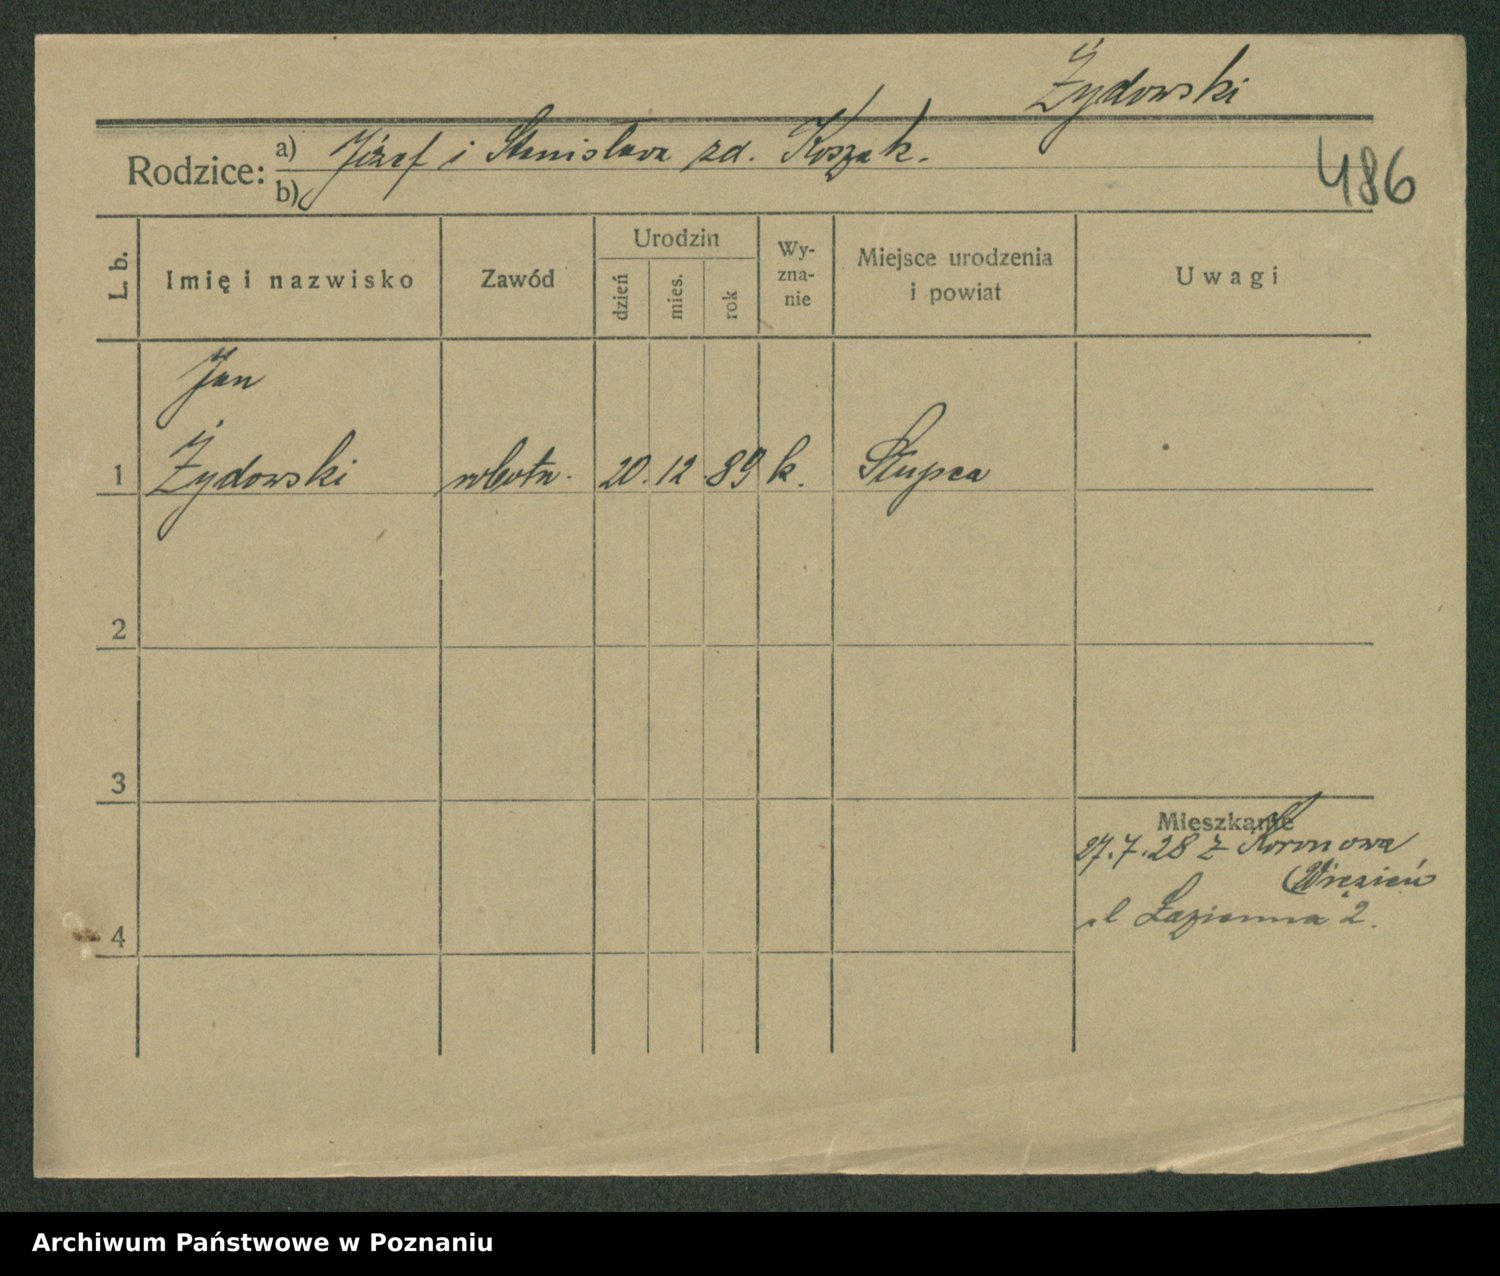 Żydowski
Rodzice: a) Józef i Stanisława zd. Koszak.
b)
486
L. b.
Imię i nazwisko
Zawód
Urodzin
dzień
mies.
rok
Wy-
zna-
nie
Miejsce urodzenia
i powiat
Uwagi
Jan
1 Żydowski robotn. 20. 12. 89 k. Słupca
2
3
Mieszkanie
27.7.28 z Koronowa
Więzień
ul Łazienna 2.
4
Archiwum Państwowe w Poznaniu